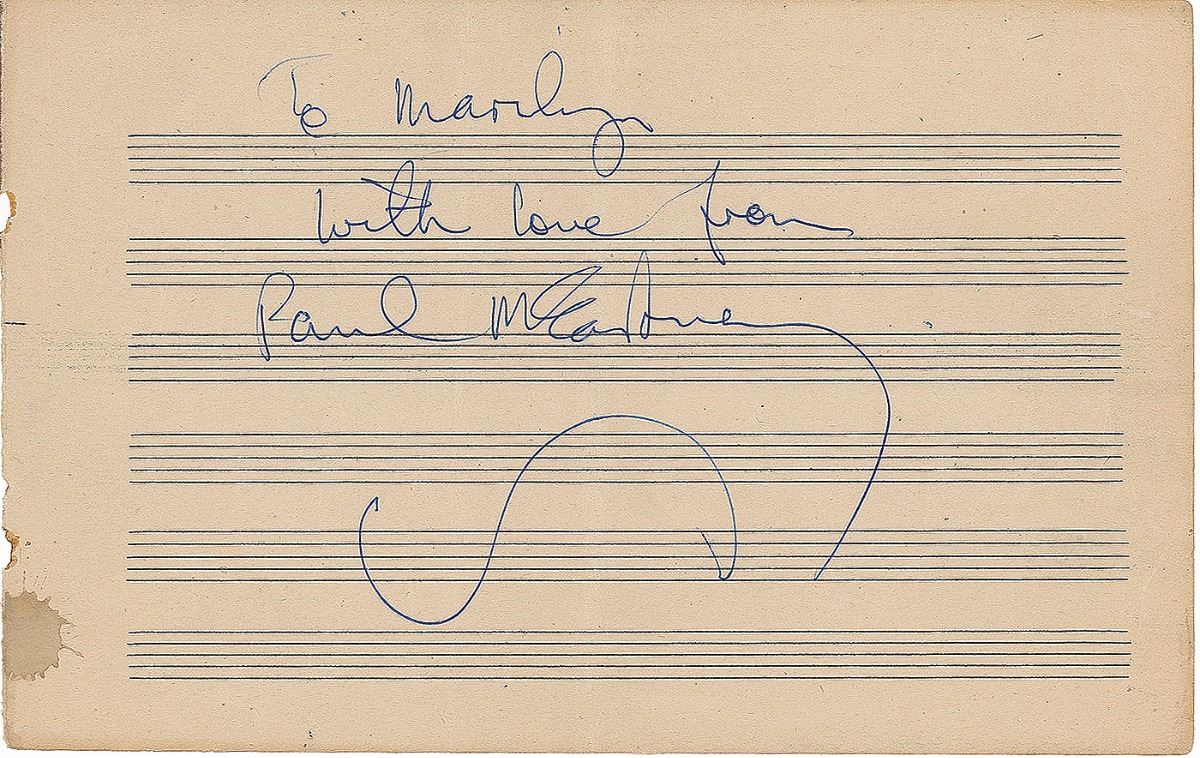 To Marilyn
with love from
Paul McCartney